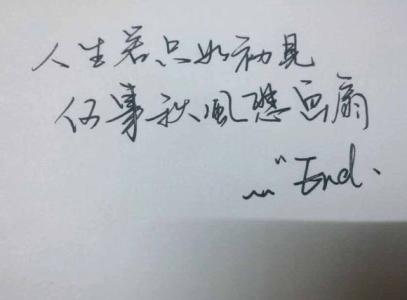 人生若只如初見
何事秋風悲画扇
..." End.